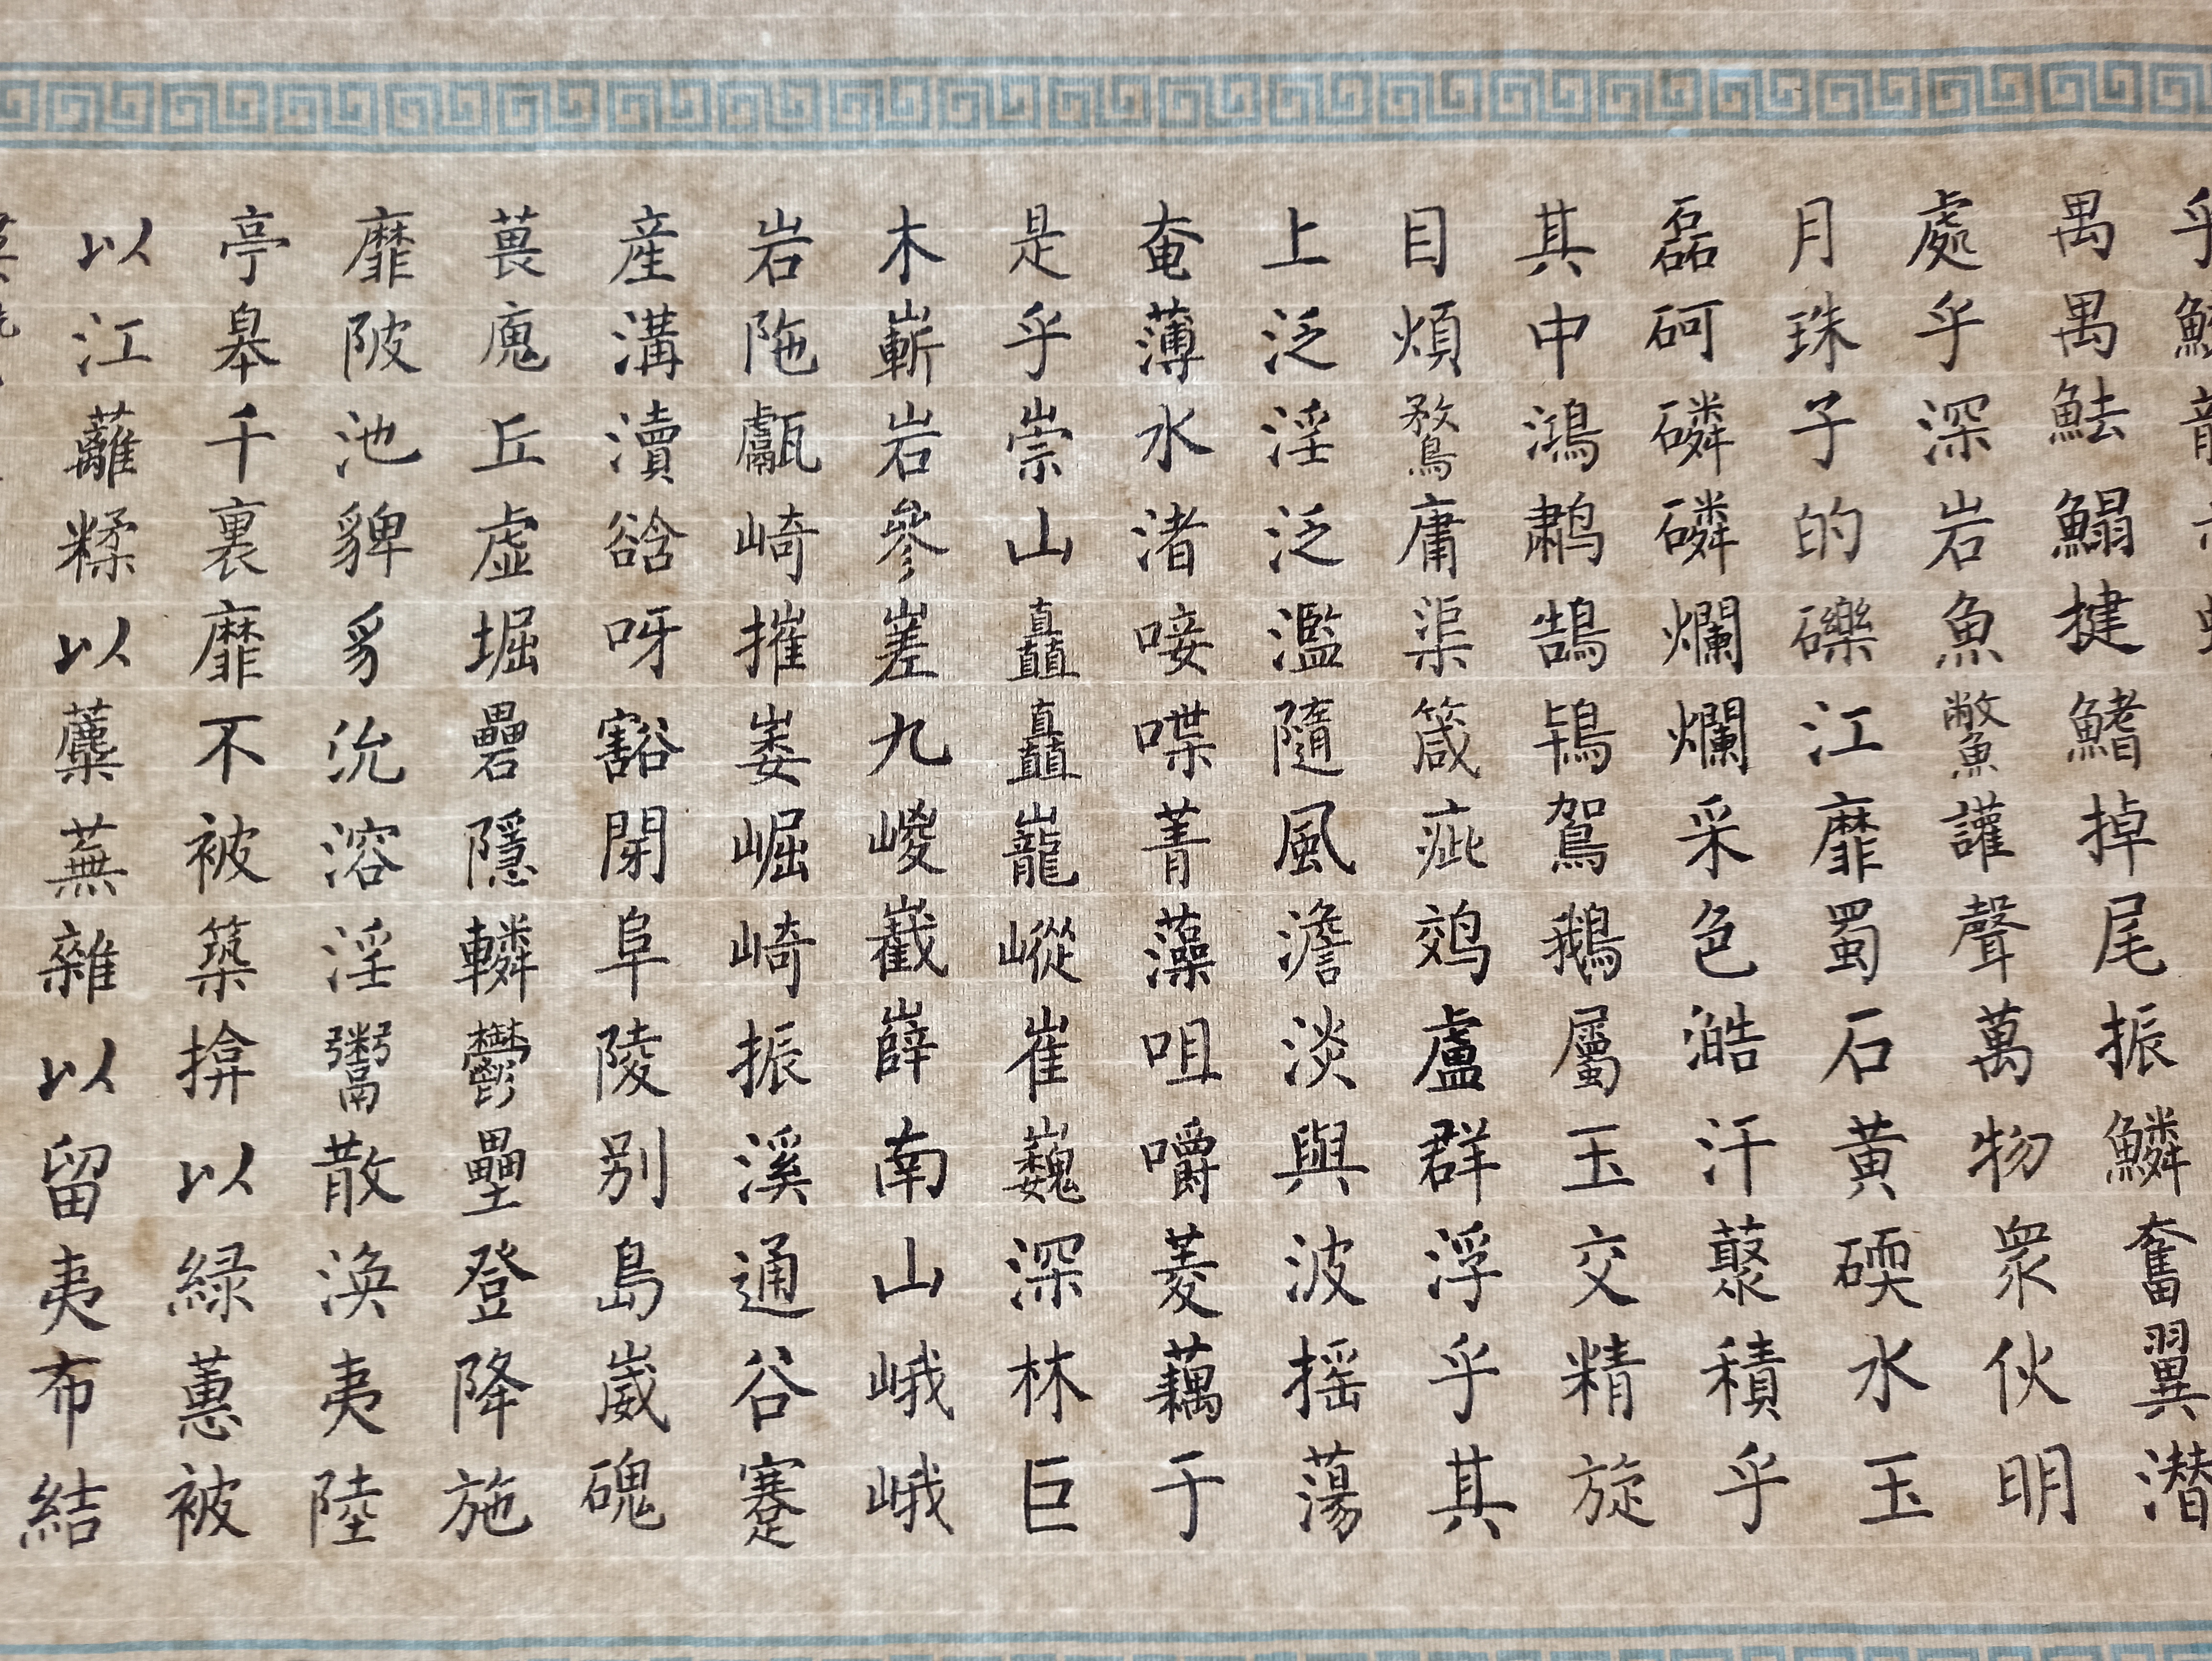 乎
禺禺魼鰨揵鰭掉尾振鱗奮翼潛
處乎深岩魚鱉讙聲萬物眾伙明
月珠子的礫江靡蜀石黃碝水玉
磊砢磷磷爛爛采色澔汗藂積乎
其中鴻鷫鵠鴇鴛鵝屬玉交精旋
目煩鶩庸渠箴疵鵁盧群浮乎其
上泛淫泛濫隨風澹淡與波搖蕩
奄薄水渚唼喋菁藻咀嚼菱藕于
是乎崇山矗矗巃嵷崔巍深林巨
木嶄岩參嵳九嵕嶻薛南山峨峨
岩陁甗崎摧崣崛崎振溪通谷蹇
産溝瀆谽呀豁閉阜陵别島崴磈
葨廆丘虛堀礨隱轔鬱壘登降施
靡陂池貏豸沇溶淫鬻散渙夷陸
亭皋千裏靡不被築揜以緑蕙被
以江蘺糅以蘪蕪雜以留夷布結